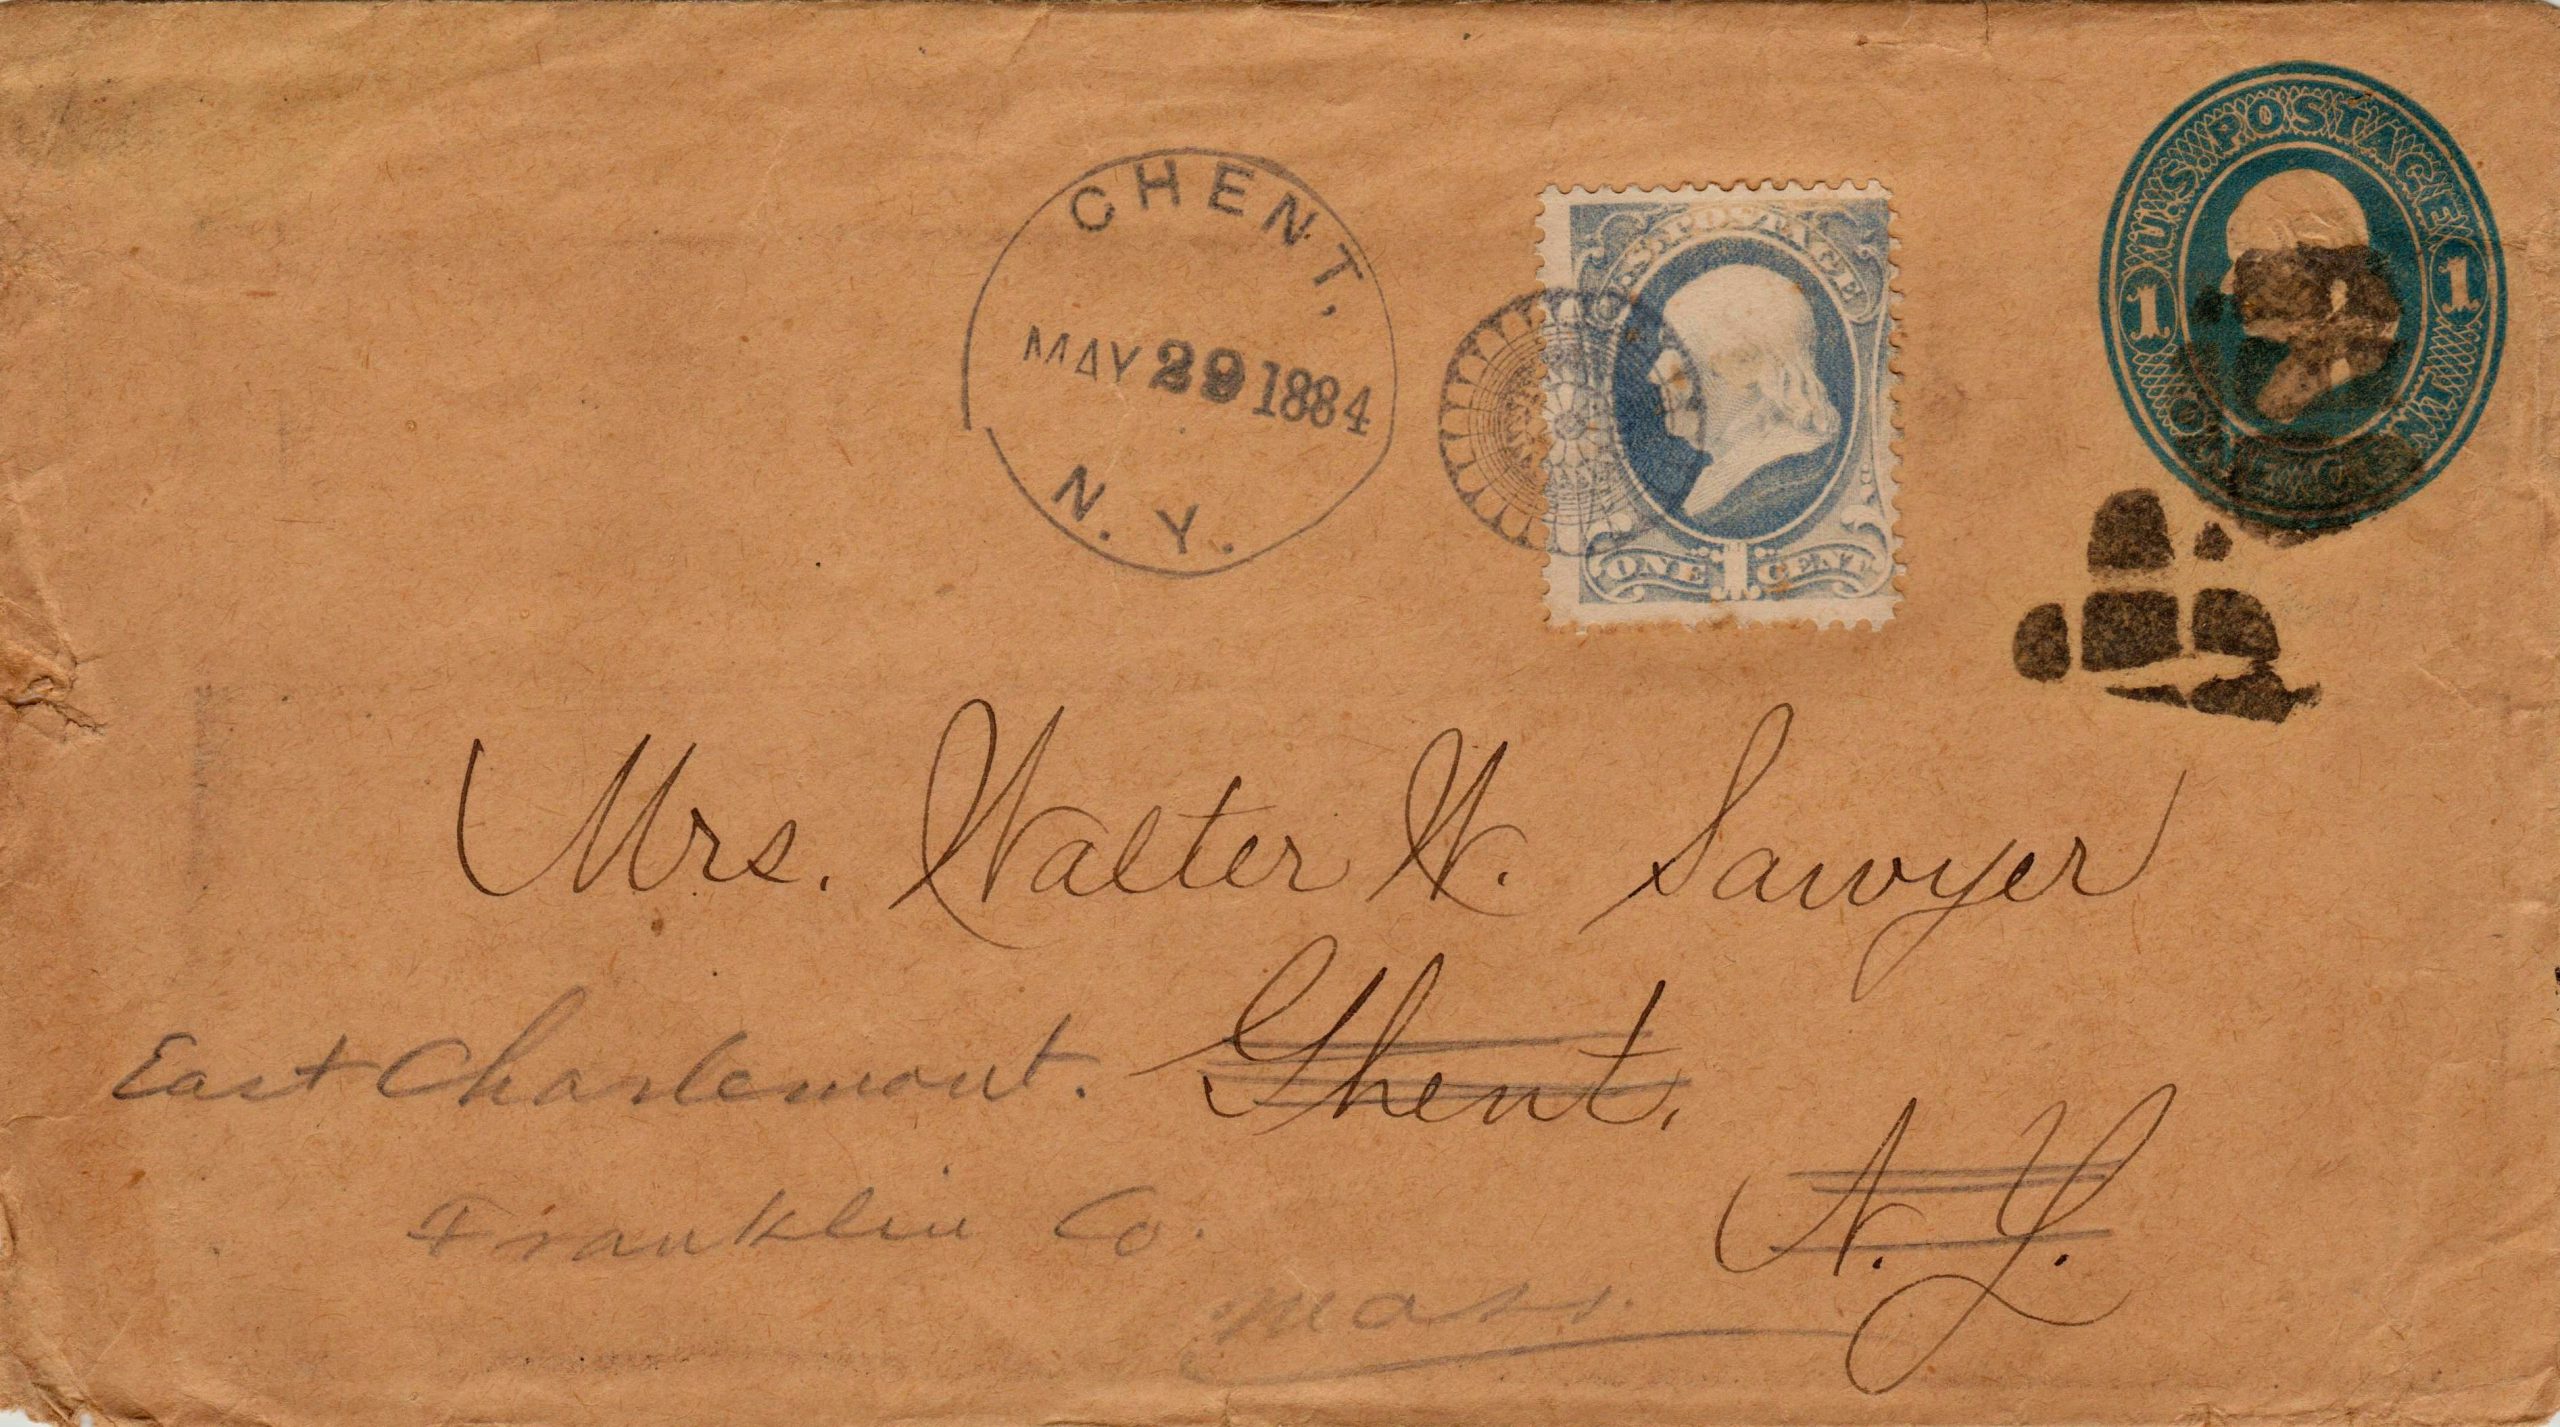 CHENT,
MAY 29 1884
N. Y.
U.S. POSTAGE
ONE 1 CENT
U.S. POSTAGE
1 1
ONE CENT
Mrs. Walter W. Sawyer
Ghent,
N. Y.
East Charlemont.
Franklin Co.
Mass.